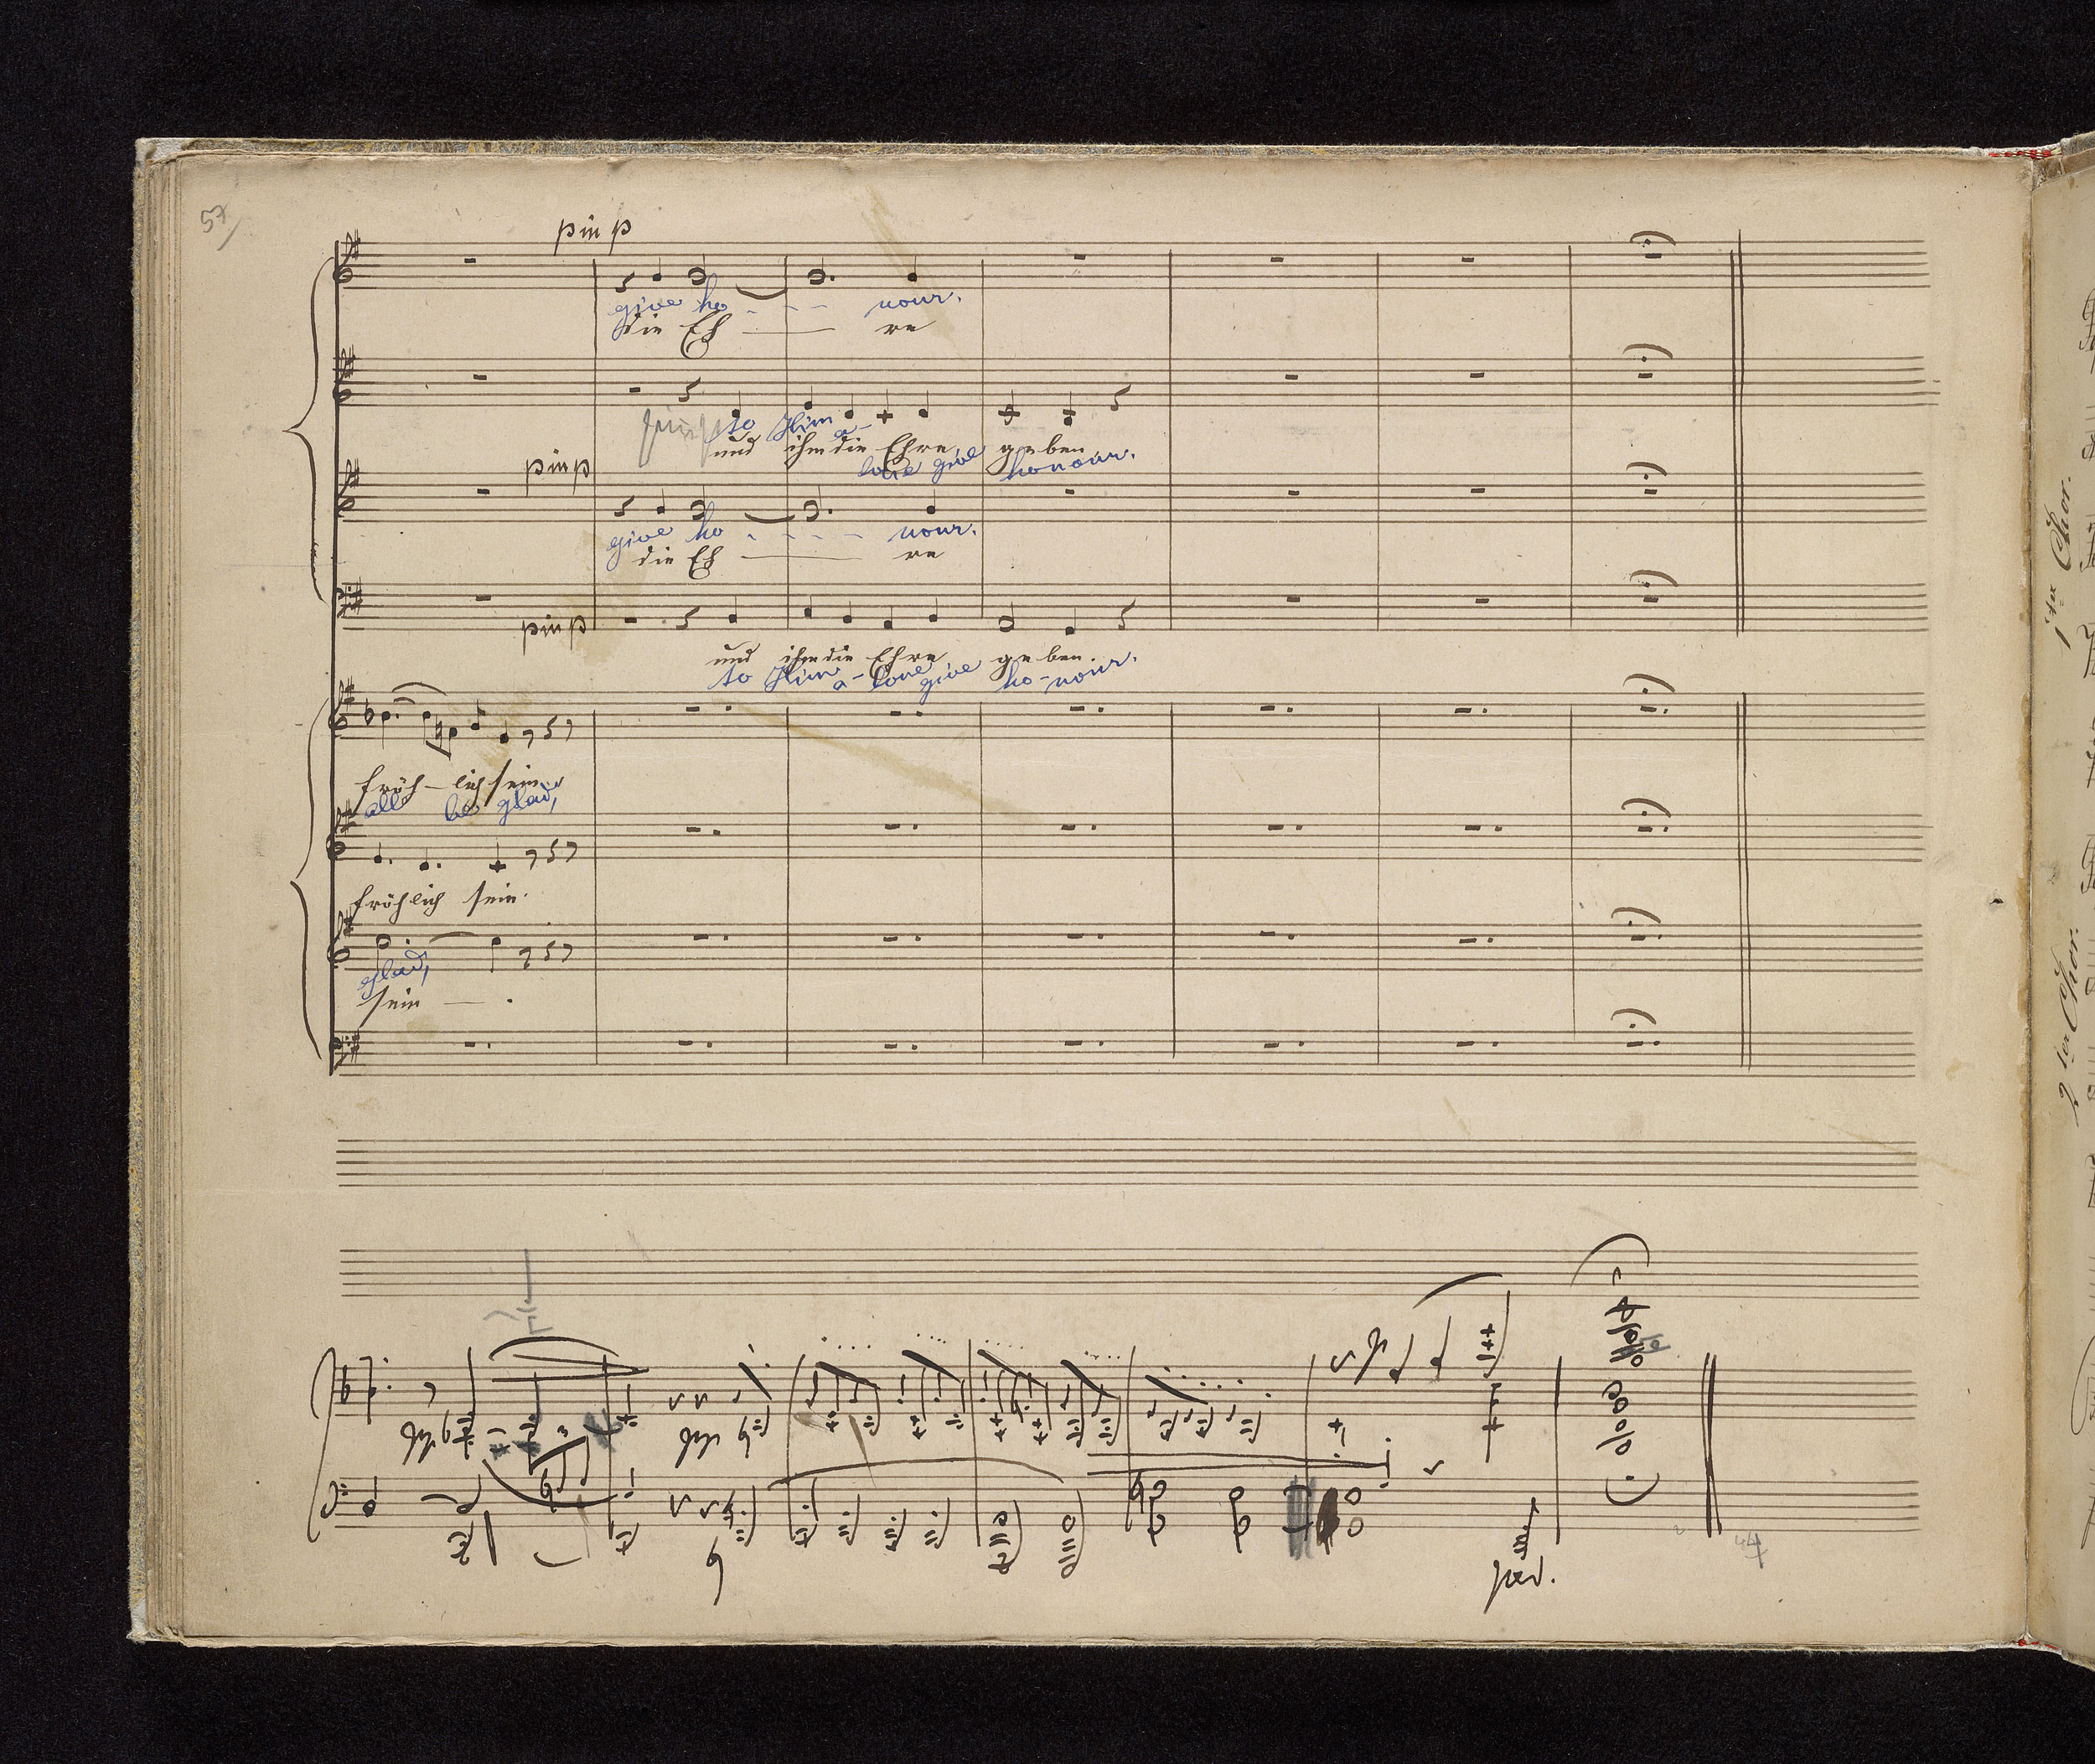 57
piu p
give ho - - - nour.
die Eh — re
to Him a-
und ihm die Ehre geben
lone give honour.
piu p
give ho - - - - nour.
die Eh — re
piu p
und ihm die Ehre geben.
to Him a-lone give ho-nour.
fröh - lich sein
all be glad,
fröhlich sein.
glad,
sein — .
3
ped.
1ter Chor.
2ter Chor.